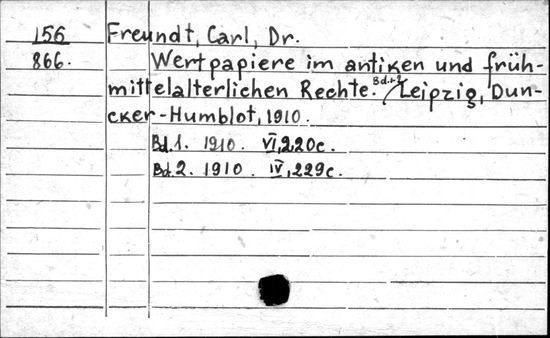 156 Freundt, Carl, Dr.
866. Wertpapiere im antiken und früh-
mittelalterlichen Rechte. Bd.1+2 Leipzig, Dun-
cker-Humblot, 1910.
Bd.1. 1910. VI,220c.
Bd.2. 1910. IV,229c.